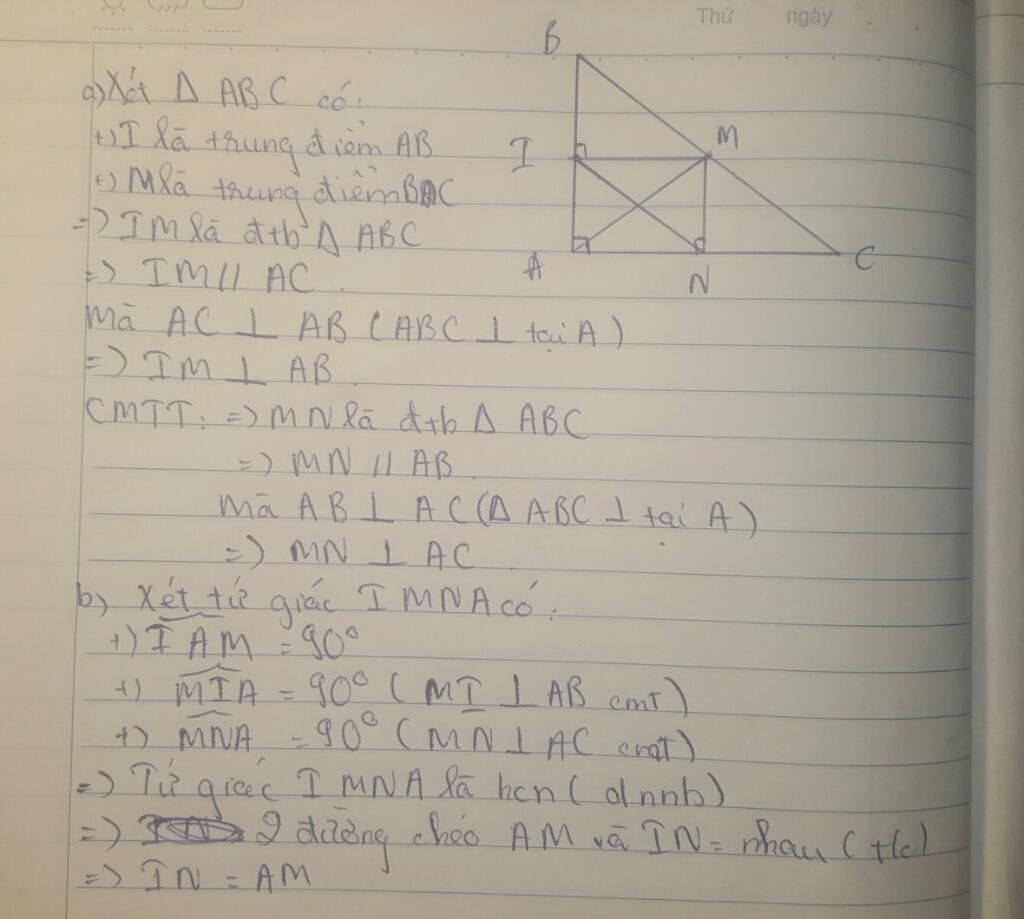 Thứ ngày
a) Xét Δ ABC có:
+) I là trung điểm AB
+) M là trung điểm BC
=) IM là đtb Δ ABC
=) IM // AC.
Mà AC ⊥ AB (ABC ⊥ tại A)
=) IM ⊥ AB
CMTT: =) MN là đtb Δ ABC
=) MN // AB
Mà AB ⊥ AC (Δ ABC ⊥ tại A)
=) MN ⊥ AC
b) Xét tứ giác IMNA có:
+) IAM = 90°
+) MIA = 90° (MI ⊥ AB cmt)
+) MNA = 90° (MN ⊥ AC cmt)
=) Tứ giác IMNA là hcn (dnnb)
=) 2 đường chéo AM và IN = nhau (t/c)
=) IN = AM
B
I
M
A
N
C